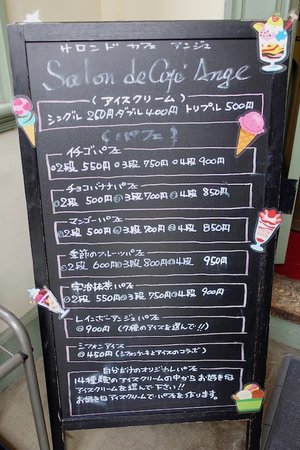 サロンド カフェ アンジュ
Salon de Café Ange
(アイスクリーム)
シングル 260円 ダブル 400円 トリプル 500円
(パフェ)
イチゴパフェ
◎2段 550円 ◎3段 750円 ◎4段 900円
チョコバナナパフェ
◎2段 500円 ◎3段 700円 ◎4段 850円
マンゴーパフェ
◎2段 500円 ◎3段 700円 ◎4段 850円
季節のフルーツパフェ
◎2段 600円 ◎3段 800円 ◎4段 950円
宇治抹茶パフェ
◎2段 550円 ◎3段 750円 ◎4段 900円
レインボーアンジュパフェ
◎900円 (7種のアイスを選んで!!)
シフォンアイス
◎450円 (シフォンケーキとアイスのコラボ)
自分だけのオリジナルパフェ
14種類のアイスクリームの中からお好きな
アイスクリームを選んで下さい!!
お好きなアイスクリームでパフェを作ります。